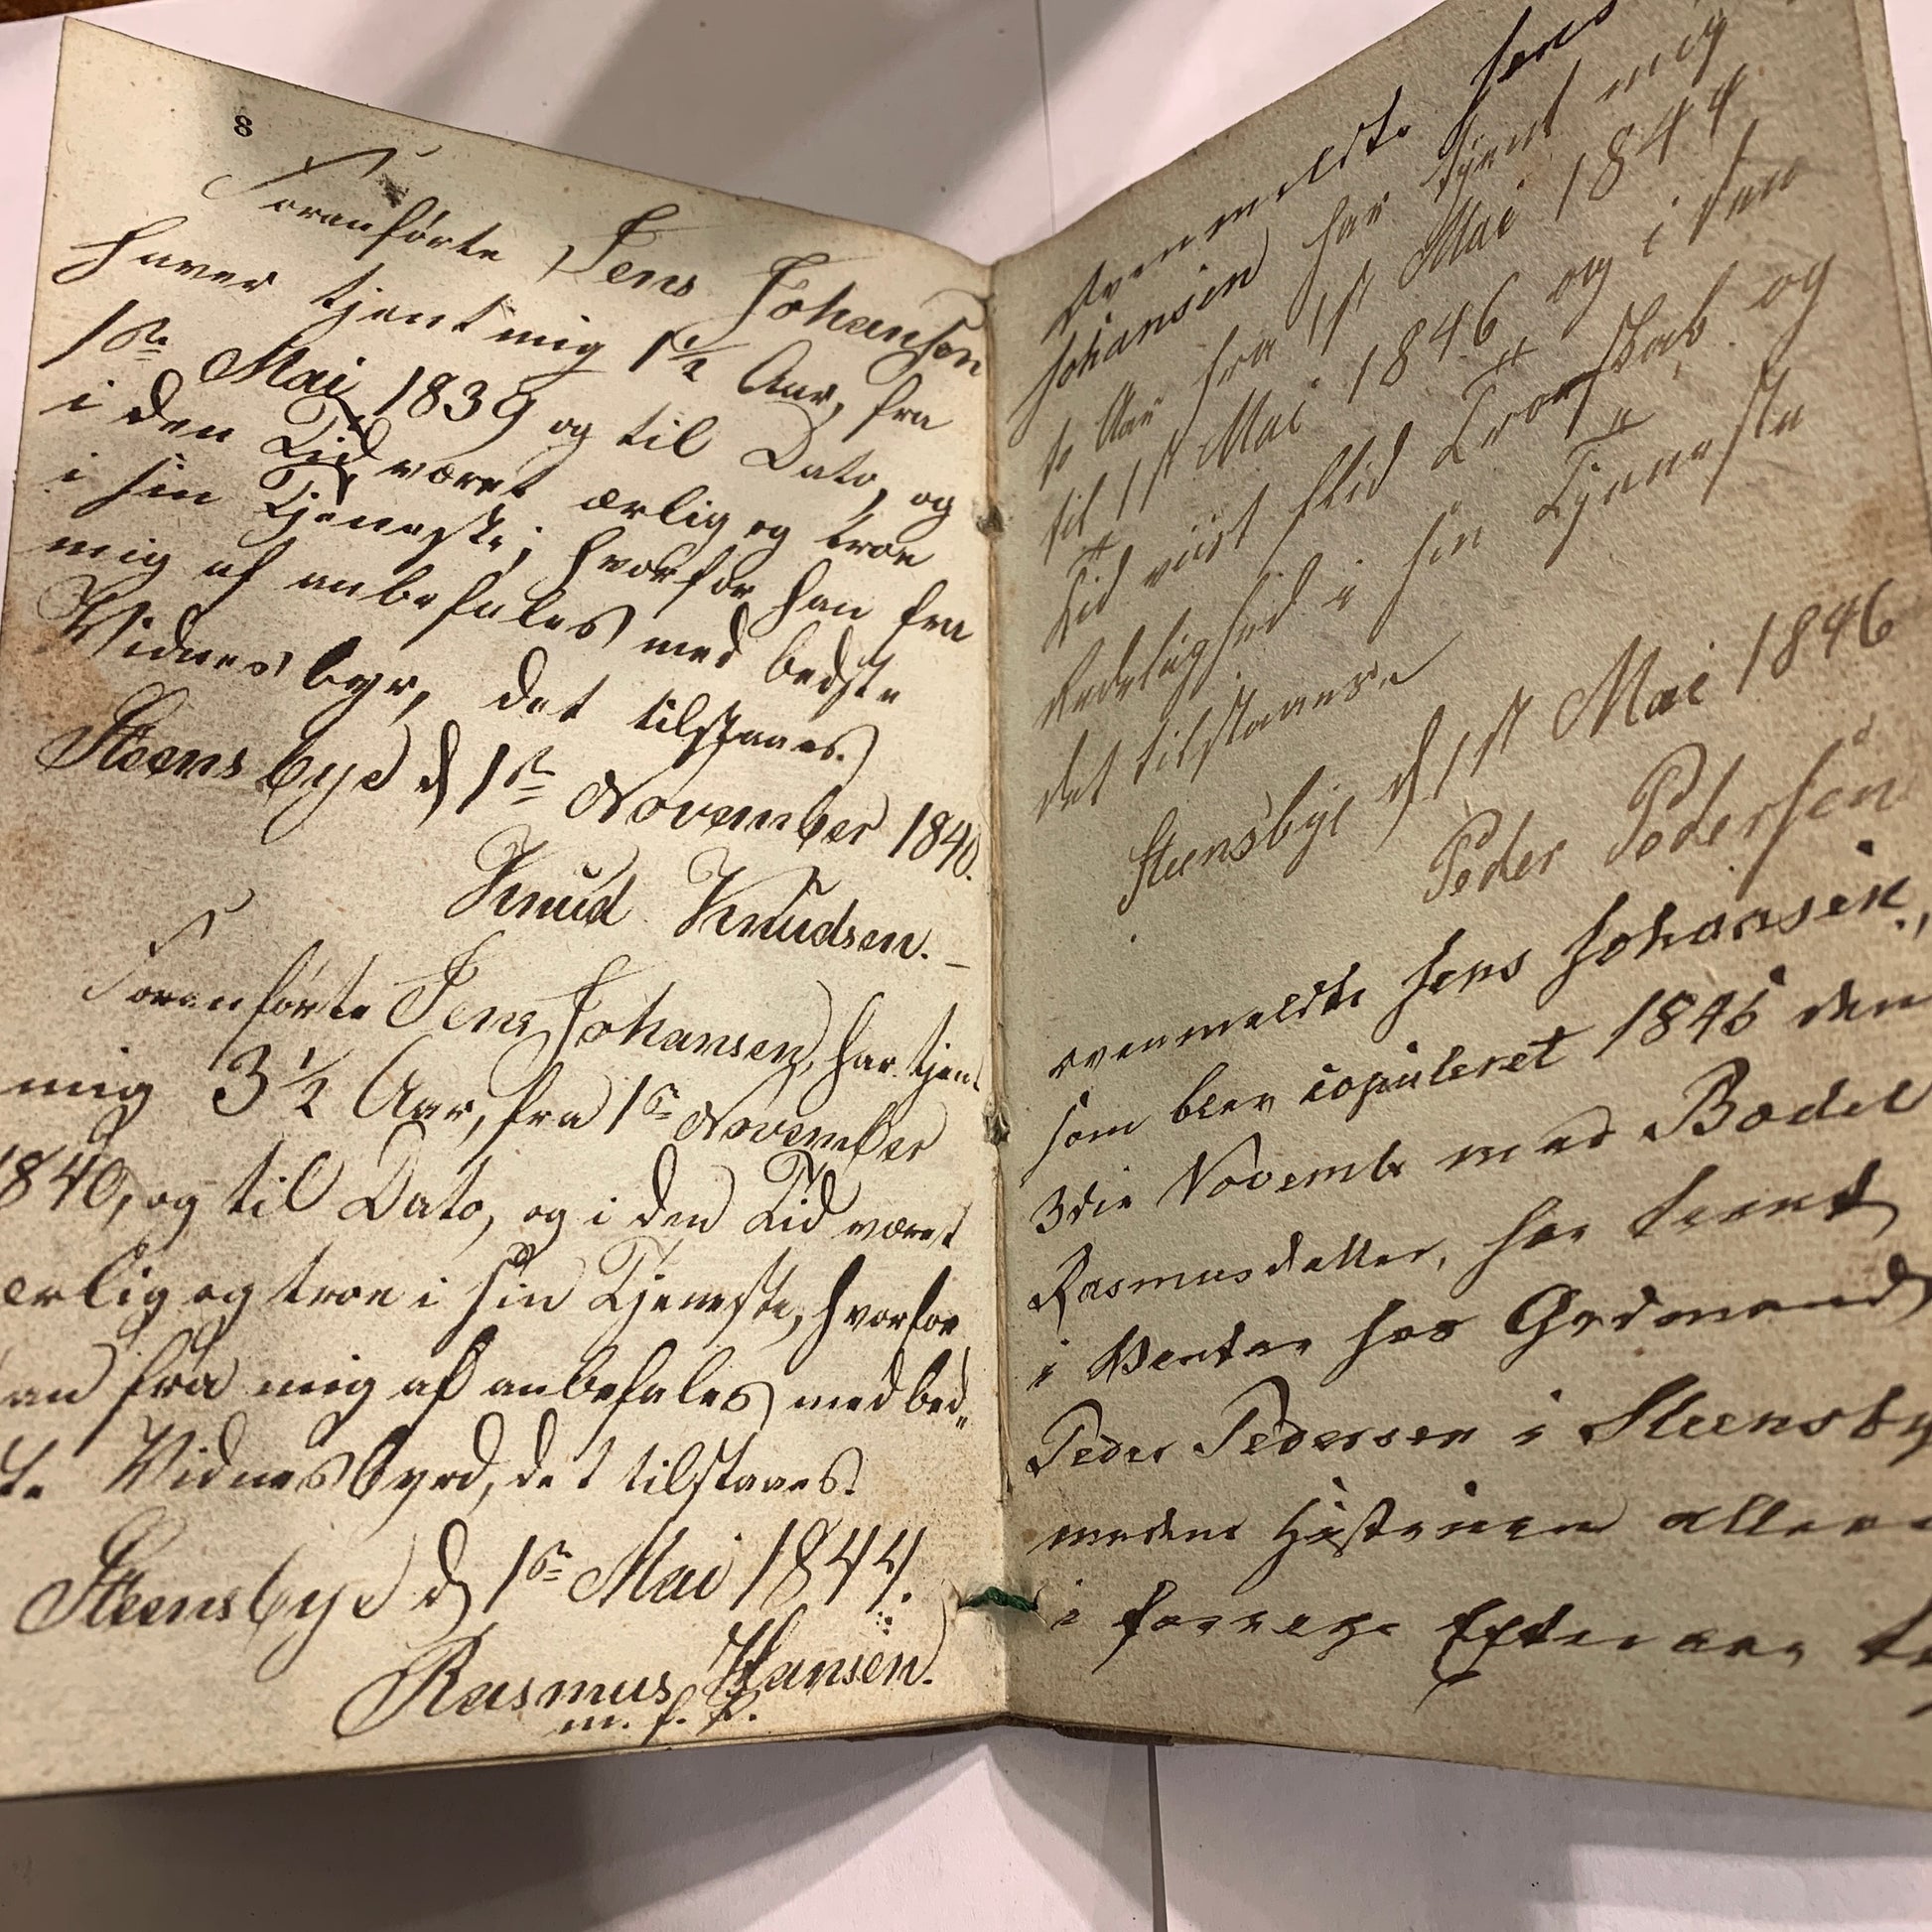 8
Foranførte Jens Johansen
haver tjent mig 1½ Aar, fra
1ste Mai 1839 og til Dato, og
i den Tid været ærlig og troe
i sin Tjeneste; hvorfor han fra
mig af anbefales med bedste
Vidnesbyr, det tilstaaes.
Steensbye d 1ste November 1840.
Knud Knudsen.
Foranførte Jens Johansen, har tjent
mig 3½ Aar, fra 1ste November
1840, og til Dato, og i den Tid været
ærlig og troe i sin Tjeneste, hvorfor
han fra mig af anbefales med bed„
ste Vidnesbyrd, det tilstaaes.
Steensbye d 1ste Mai 1844.
Rasmus Hansen.
m. f. P.
Ovenmeldte Jens
Johansen har tjent mig
to Aar fra 1st Mai 1844
til 1st Mai 1846 og i den
Tid viist flid Troeskab og
Redelighed i sin Tjenneste
det tilstaaes
Steensbye d 1st Mai 1846
Peder Pedersen
ovenmeldte Jens Johansen,
som blev copuleret 1845 den
3die Novemb med Bodel
Rasmusdatter, har tient
i Venter hos Grdmand
Peder Pedersen i Steensby
medens Hustruen allerede
i forrige Efteraar